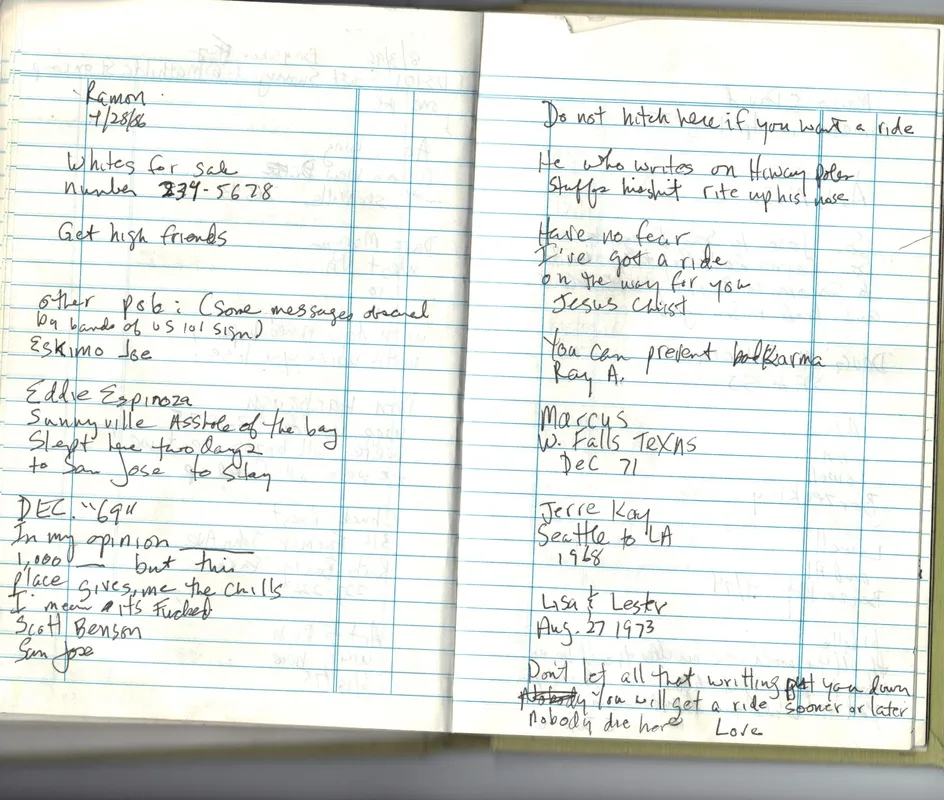 Ramon
7/28/86
Whites for sale
number 239-5678
Get high friends
other pob: (some messages obscured
by bands of US 101 sign)
Eskimo Joe
Eddie Espinoza
Sunnyville Asshole of the bay
Slept here two days
to San Jose to Stay
DEC. "69"
In my opinion ____
1,000 __ but this
place gives me the chills
I mean its Fucked
Scott Benson
San Jose
Do not hitch here if you want a ride
He who writes on Hiway poles
stuffs rite up his nose
Have no fear
I've got a ride
on the way for you
Jesus Christ
You can prevent bad Karma
Ray A.
Marcus
W. Falls Texas
Dec 71
Jerre Kay
Seattle to LA
1968
Lisa & Lester
Aug. 27 1973
Don't let all that writting put you down
You will get a ride sooner or later
nobody die here Love